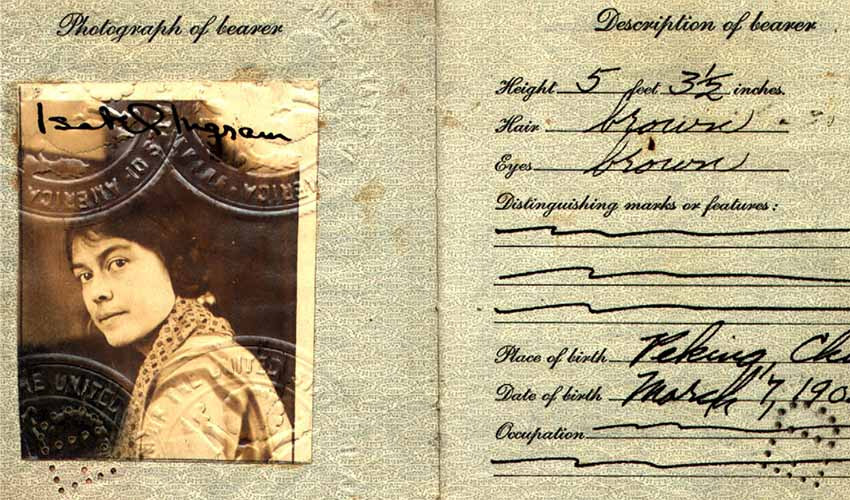 Photograph of bearer
Isabel Ingram
OF AMERICA
THE UNITED
UNITED
Description of bearer
Height 5 feet 3½ inches.
Hair brown
Eyes brown
Distinguishing marks or features:
Place of birth Peking, Ch
Date of birth March 7, 190
Occupation